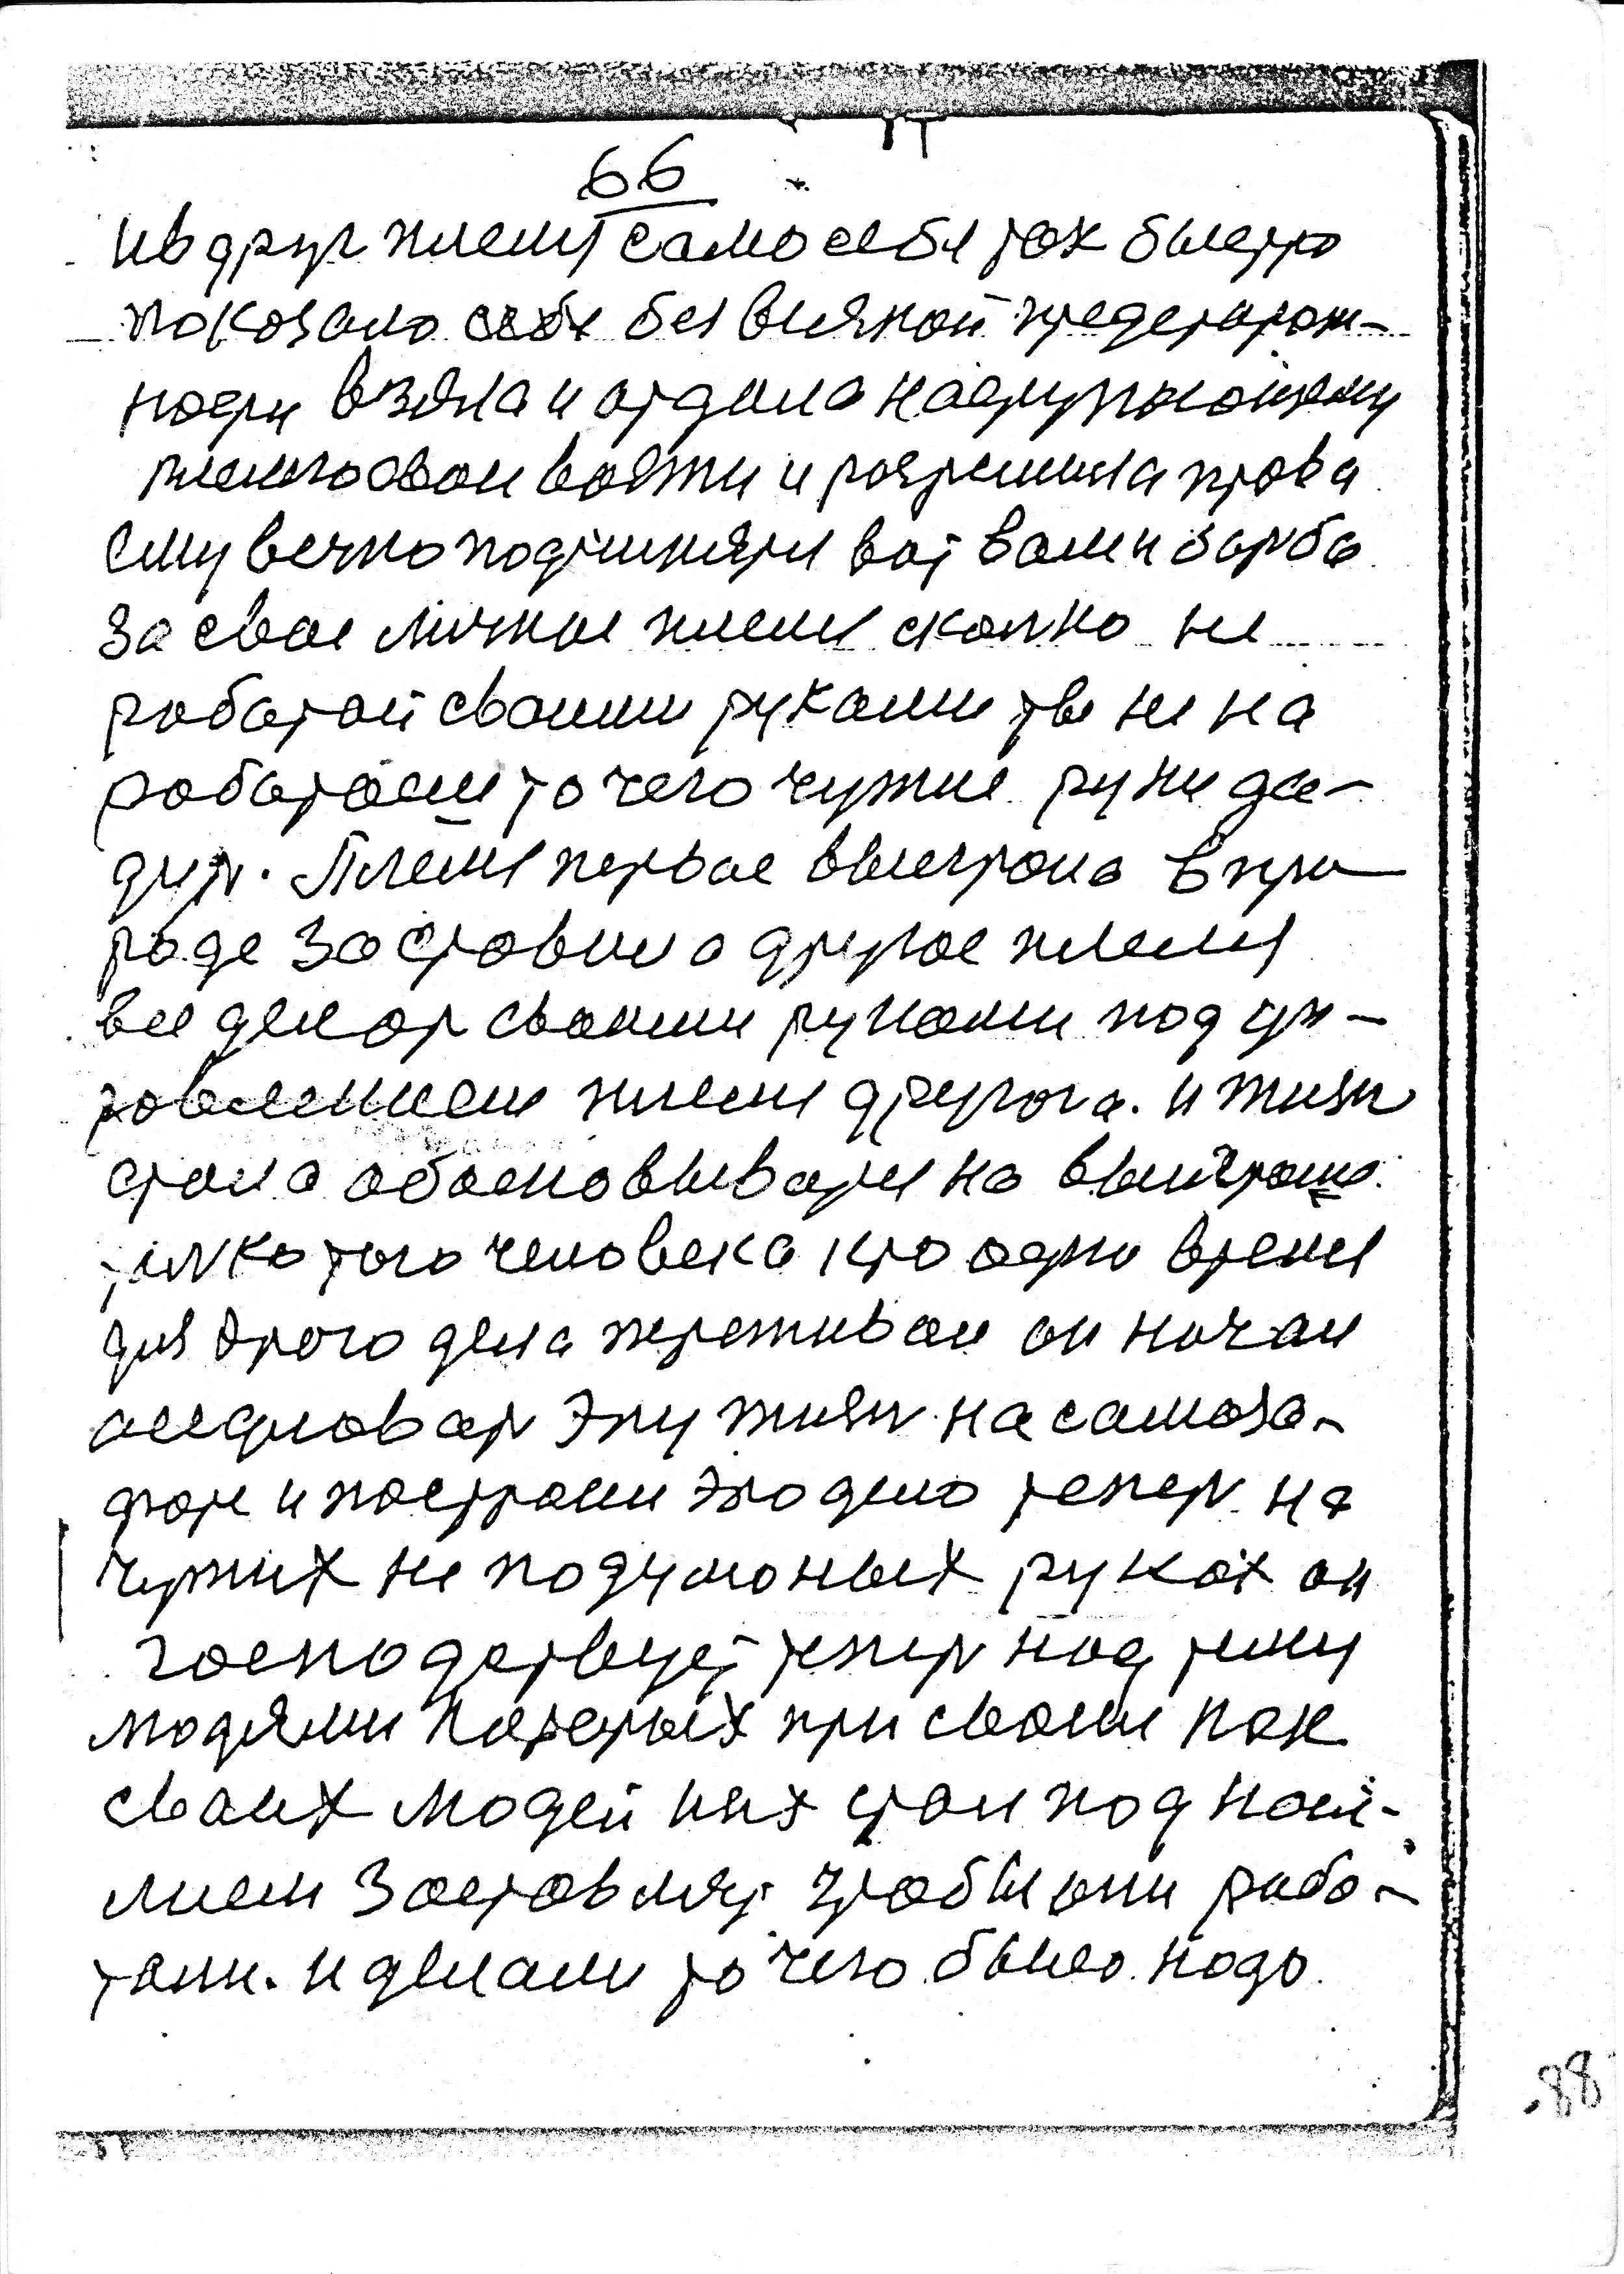 66
ивдруг племя само себя так быстро
показало себя без всякой предсторож-
ности взяла и отдала наступающему
племю свои вожжи и разрешила права
ему вечно подчинятся вот вам и борба
за свое личное племя сколко не
работай своими руками ты не на
работаеш то чего чужие руки де-
дут. Племя первое выеграло в при
роде заставило другое племя
все делат своими руками под уп-
равлением племя другога. и жизн
стала обосновыватся на выиграш
толко того человека кто одно время
для этого дела переживал он начал
оседловат эту жизн на самоза-
фате и построил это дело тепер на
чужих не подумоных руках он
господствует тепер над теми
людями которых присвоил как
своих людей и их стал под ной-
мием заставлят чтобы они рабо-
тали. и делали то чего было надо
88